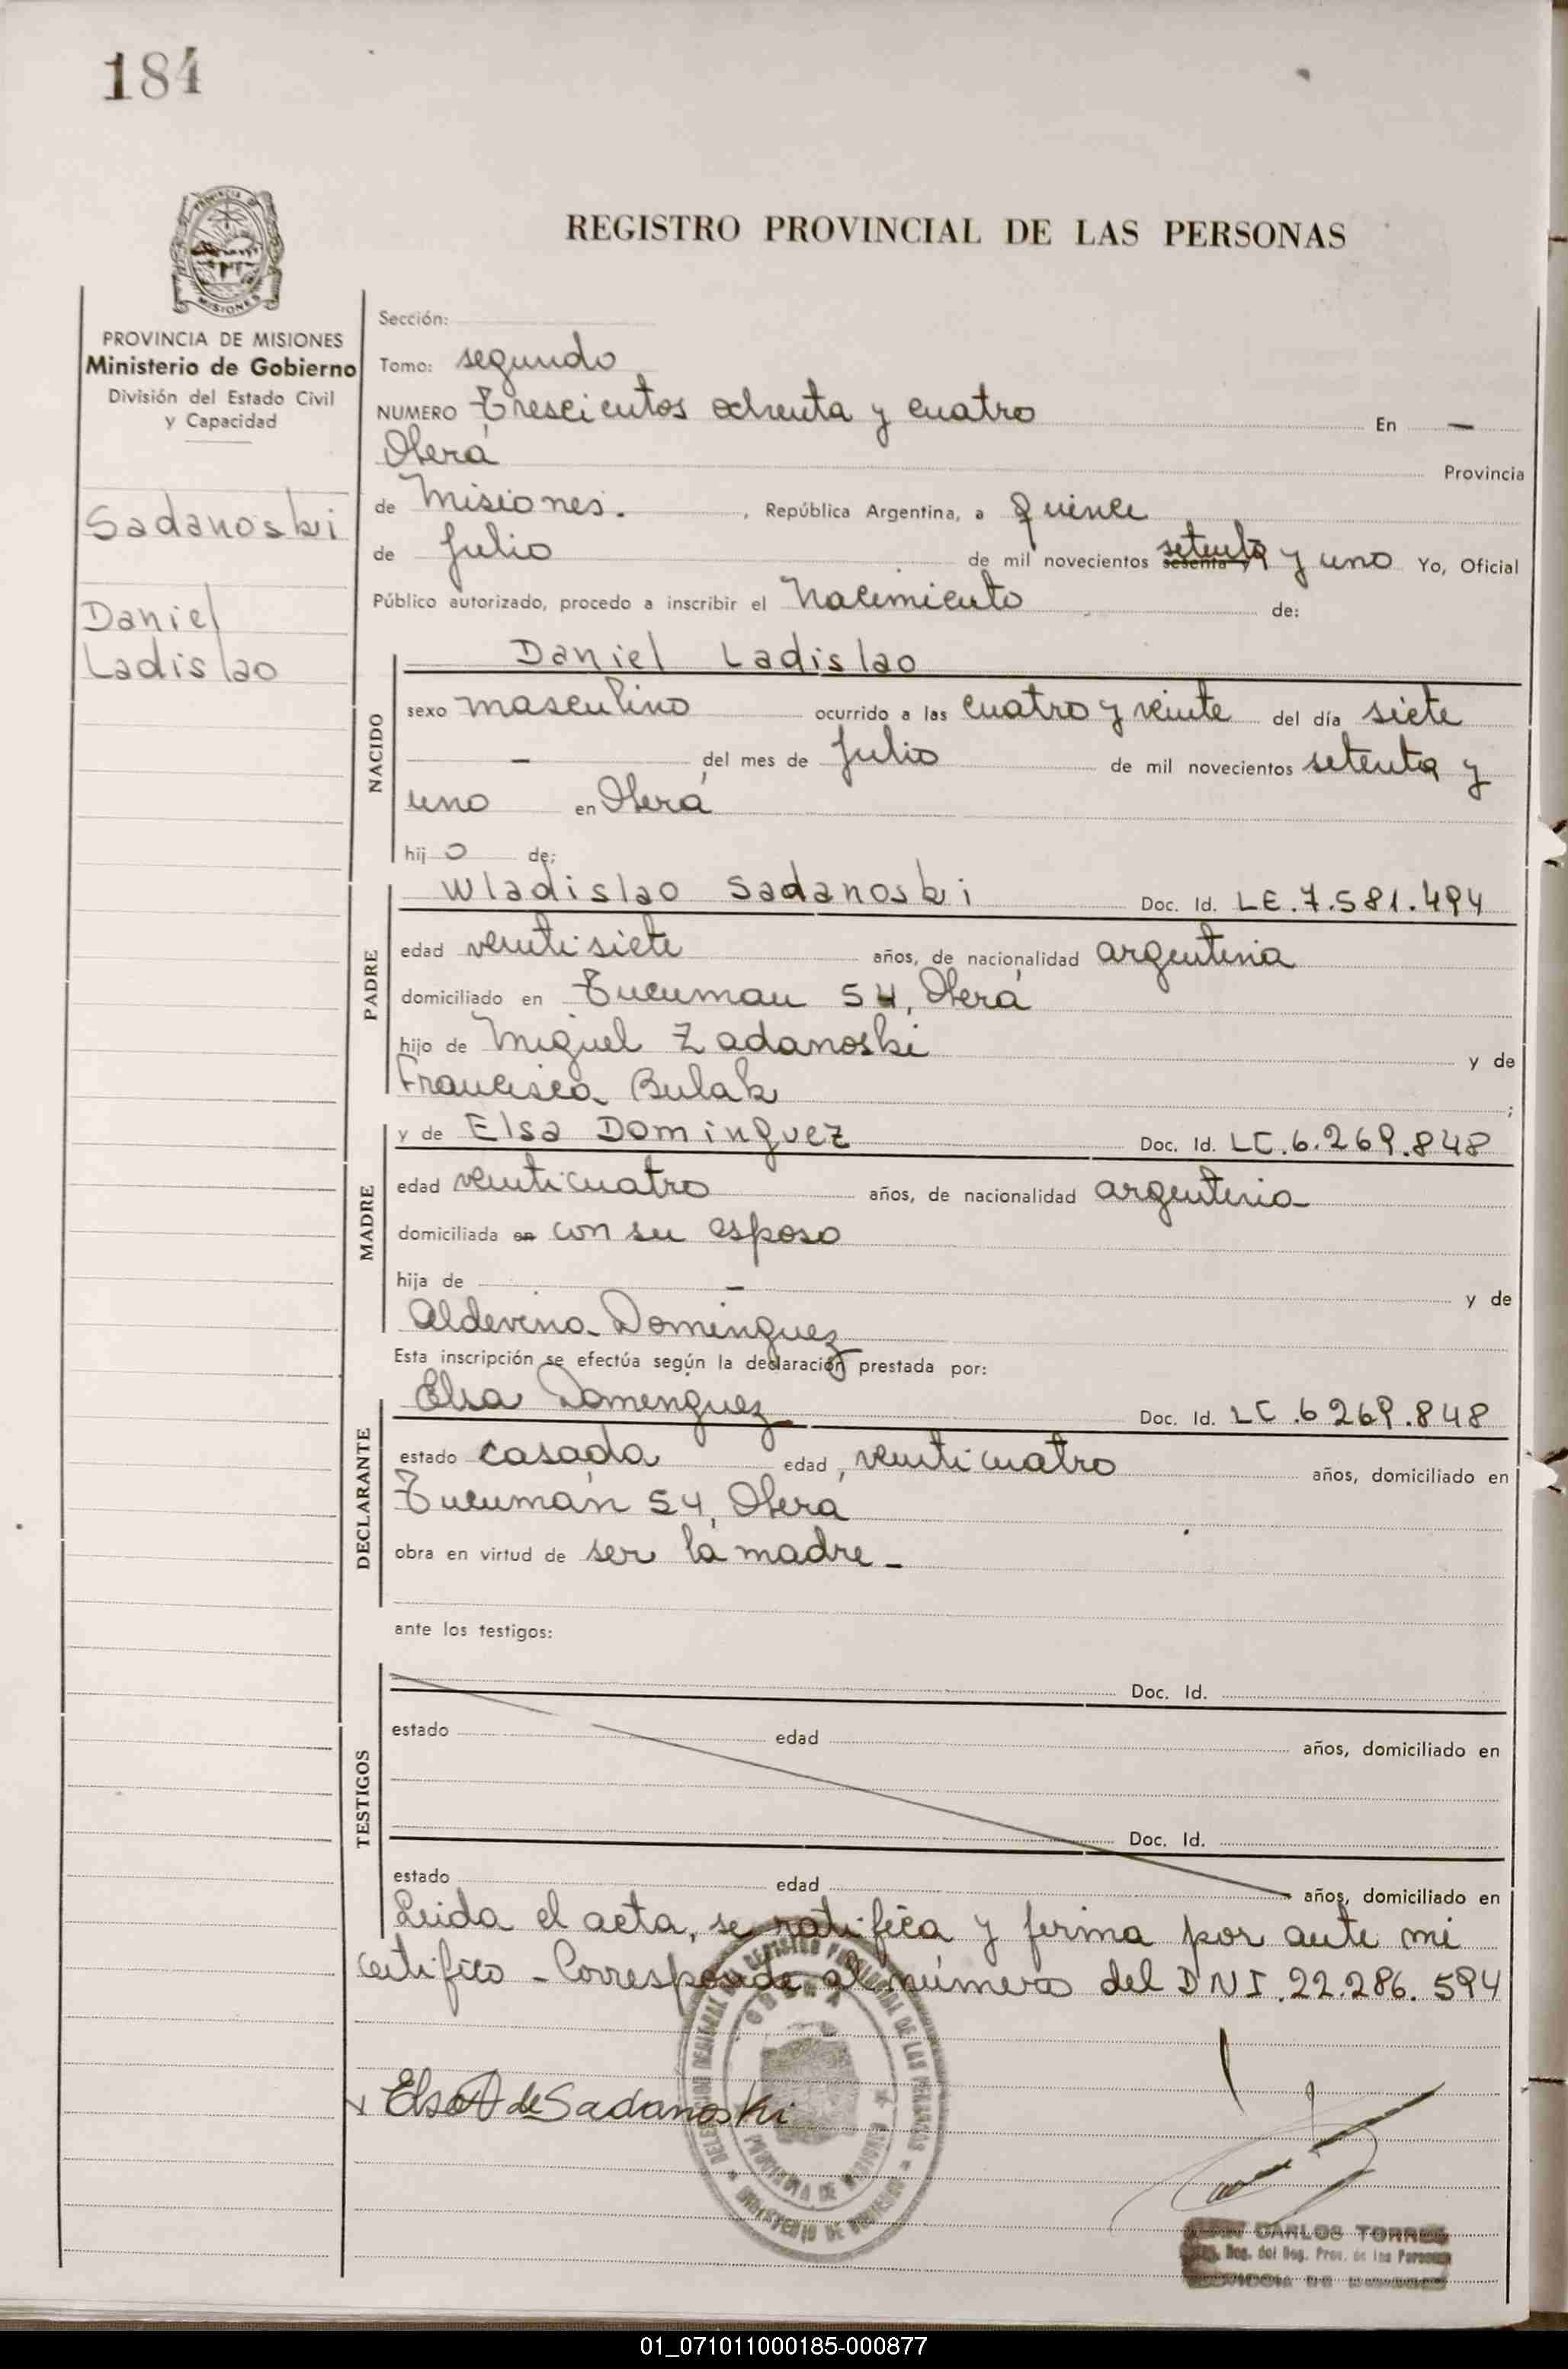 184
PROVINCIA DE MISIONES
Ministerio de Gobierno
División del Estado Civil
y Capacidad
Sadanoski
Daniel
Ladislao
REGISTRO PROVINCIAL DE LAS PERSONAS
Sección:
Tomo: segundo
NUMERO Trescientos ochenta y cuatro En —
Oberá Provincia
de Misiones. , República Argentina, a quince
de Julio de mil novecientos setenta y uno Yo, Oficial
Público autorizado, procedo a inscribir el Nacimiento de:
NACIDO
Daniel Ladislao
sexo masculino ocurrido a las cuatro y veinte del día siete
— del mes de Julio de mil novecientos setenta y
uno en Oberá
hij o de:
PADRE
Wladislao Sadanoski Doc. Id. LE.7.581.494
edad veintisiete años, de nacionalidad argentina
domiciliado en Tucuman 54, Oberá
hijo de Miguel Zadanoski y de
Francisca Bulak ;
MADRE
y de Elsa Dominguez Doc. Id. LC.6.269.848
edad veinticuatro años, de nacionalidad argentina
domiciliada en con su esposo
hija de — y de
Aldevina Dominguez
Esta inscripción se efectúa según la declaración prestada por:
DECLARANTE
Elsa Dominguez Doc. Id. LC.6269.848
estado casada edad, veinticuatro años, domiciliado en
Tucumán 54, Oberá
obra en virtud de ser la madre -
ante los testigos:
TESTIGOS
Doc. Id.
estado edad años, domiciliado en
Doc. Id.
estado edad años, domiciliado en
Leida el acta, se ratifica y firma por ante mi
certifico - Corresponde al número del DNI.22.286.594
Elsa D de Sadanoski
CARLOS TORRES
01_071011000185-000877